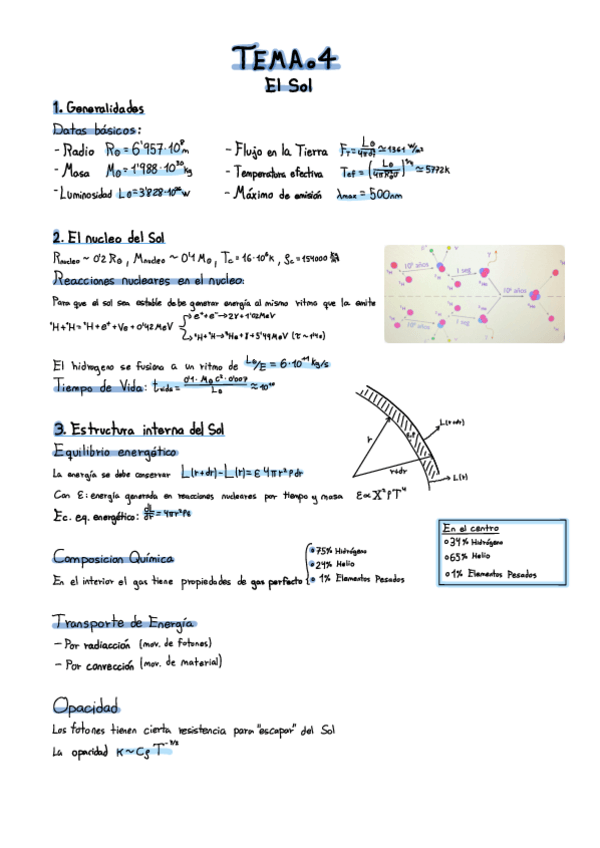 TEMA.4
El Sol
1. Generalidades
Datos básicos:
- Radio R⊙ = 6'957·10⁸ m
- Masa M⊙ = 1'988·10³⁰ kg
- Luminosidad L⊙ = 3'828·10²⁶ W
- Flujo en la Tierra F_T = L⊙/4πd² ≃ 1361 W/m²
- Temperatura efectiva Tef = (L⊙/4πR⊙²σ)^1/4 ≃ 5772K
- Máximo de emisión λmax = 500nm
2. El nucleo del Sol
Rnucleo ~ 0'2 R⊙, Mnucleo ~ 0'1 M⊙, Tc = 16·10⁶K, ρc = 154000
Reacciones nucleares en el nucleo:
Para que el sol sea estable debe generar energía al mismo ritmo que la emite
¹H+¹H = ²H + e⁺ + νe + 0'42 MeV
e⁺+e⁻→2γ+1'02MeV
²H+¹H→³He+γ+5'49MeV (τ~1'4s)
10⁹ años
1 seg
10⁶ años
10⁹ años
1 seg
El hidrogeno se fusiona a un ritmo de L⊙/E = 6·10¹¹ kg/s
Tiempo de Vida: tvida = 0'1·M⊙c²·0'007/L⊙ ≈ 10¹⁰
3. Estructura interna del Sol
Equilibrio energético
La energía se debe conservar L(r+dr) - L(r) = ε 4πr²ρdr
Con ε: energía generada en reacciones nucleares por tiempo y masa ε∝X²ρT⁴
Ec. eq. energético: dL/dr = 4πr²ρε
r
r+dr
L(r+dr)
L(r)
Composicion Química
En el interior el gas tiene propiedades de gas perfecto
• 75% Hidrógeno
• 24% Helio
• 1% Elementos Pesados
En el centro
• 34% Hidrógeno
• 65% Helio
• 1% Elementos Pesados
Transporte de Energía
- Por radiacción (mov. de fotones)
- Por convección (mov. de material)
Opacidad
Los fotones tienen cierta resistencia para "escapar" del Sol
La opacidad κ ~ Cρ T^-7/2